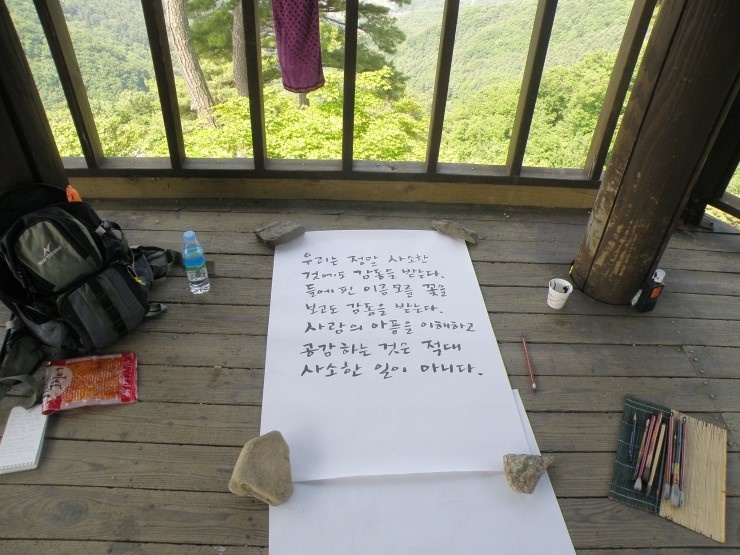 우리는 정말 사소한
것에도 감동을 받는다.
들에 핀 이름모를 꽃을
보고도 감동을 받는다.
사람의 아픔을 이해하고
공감하는 것은 적대
사소한 일이 아니다.